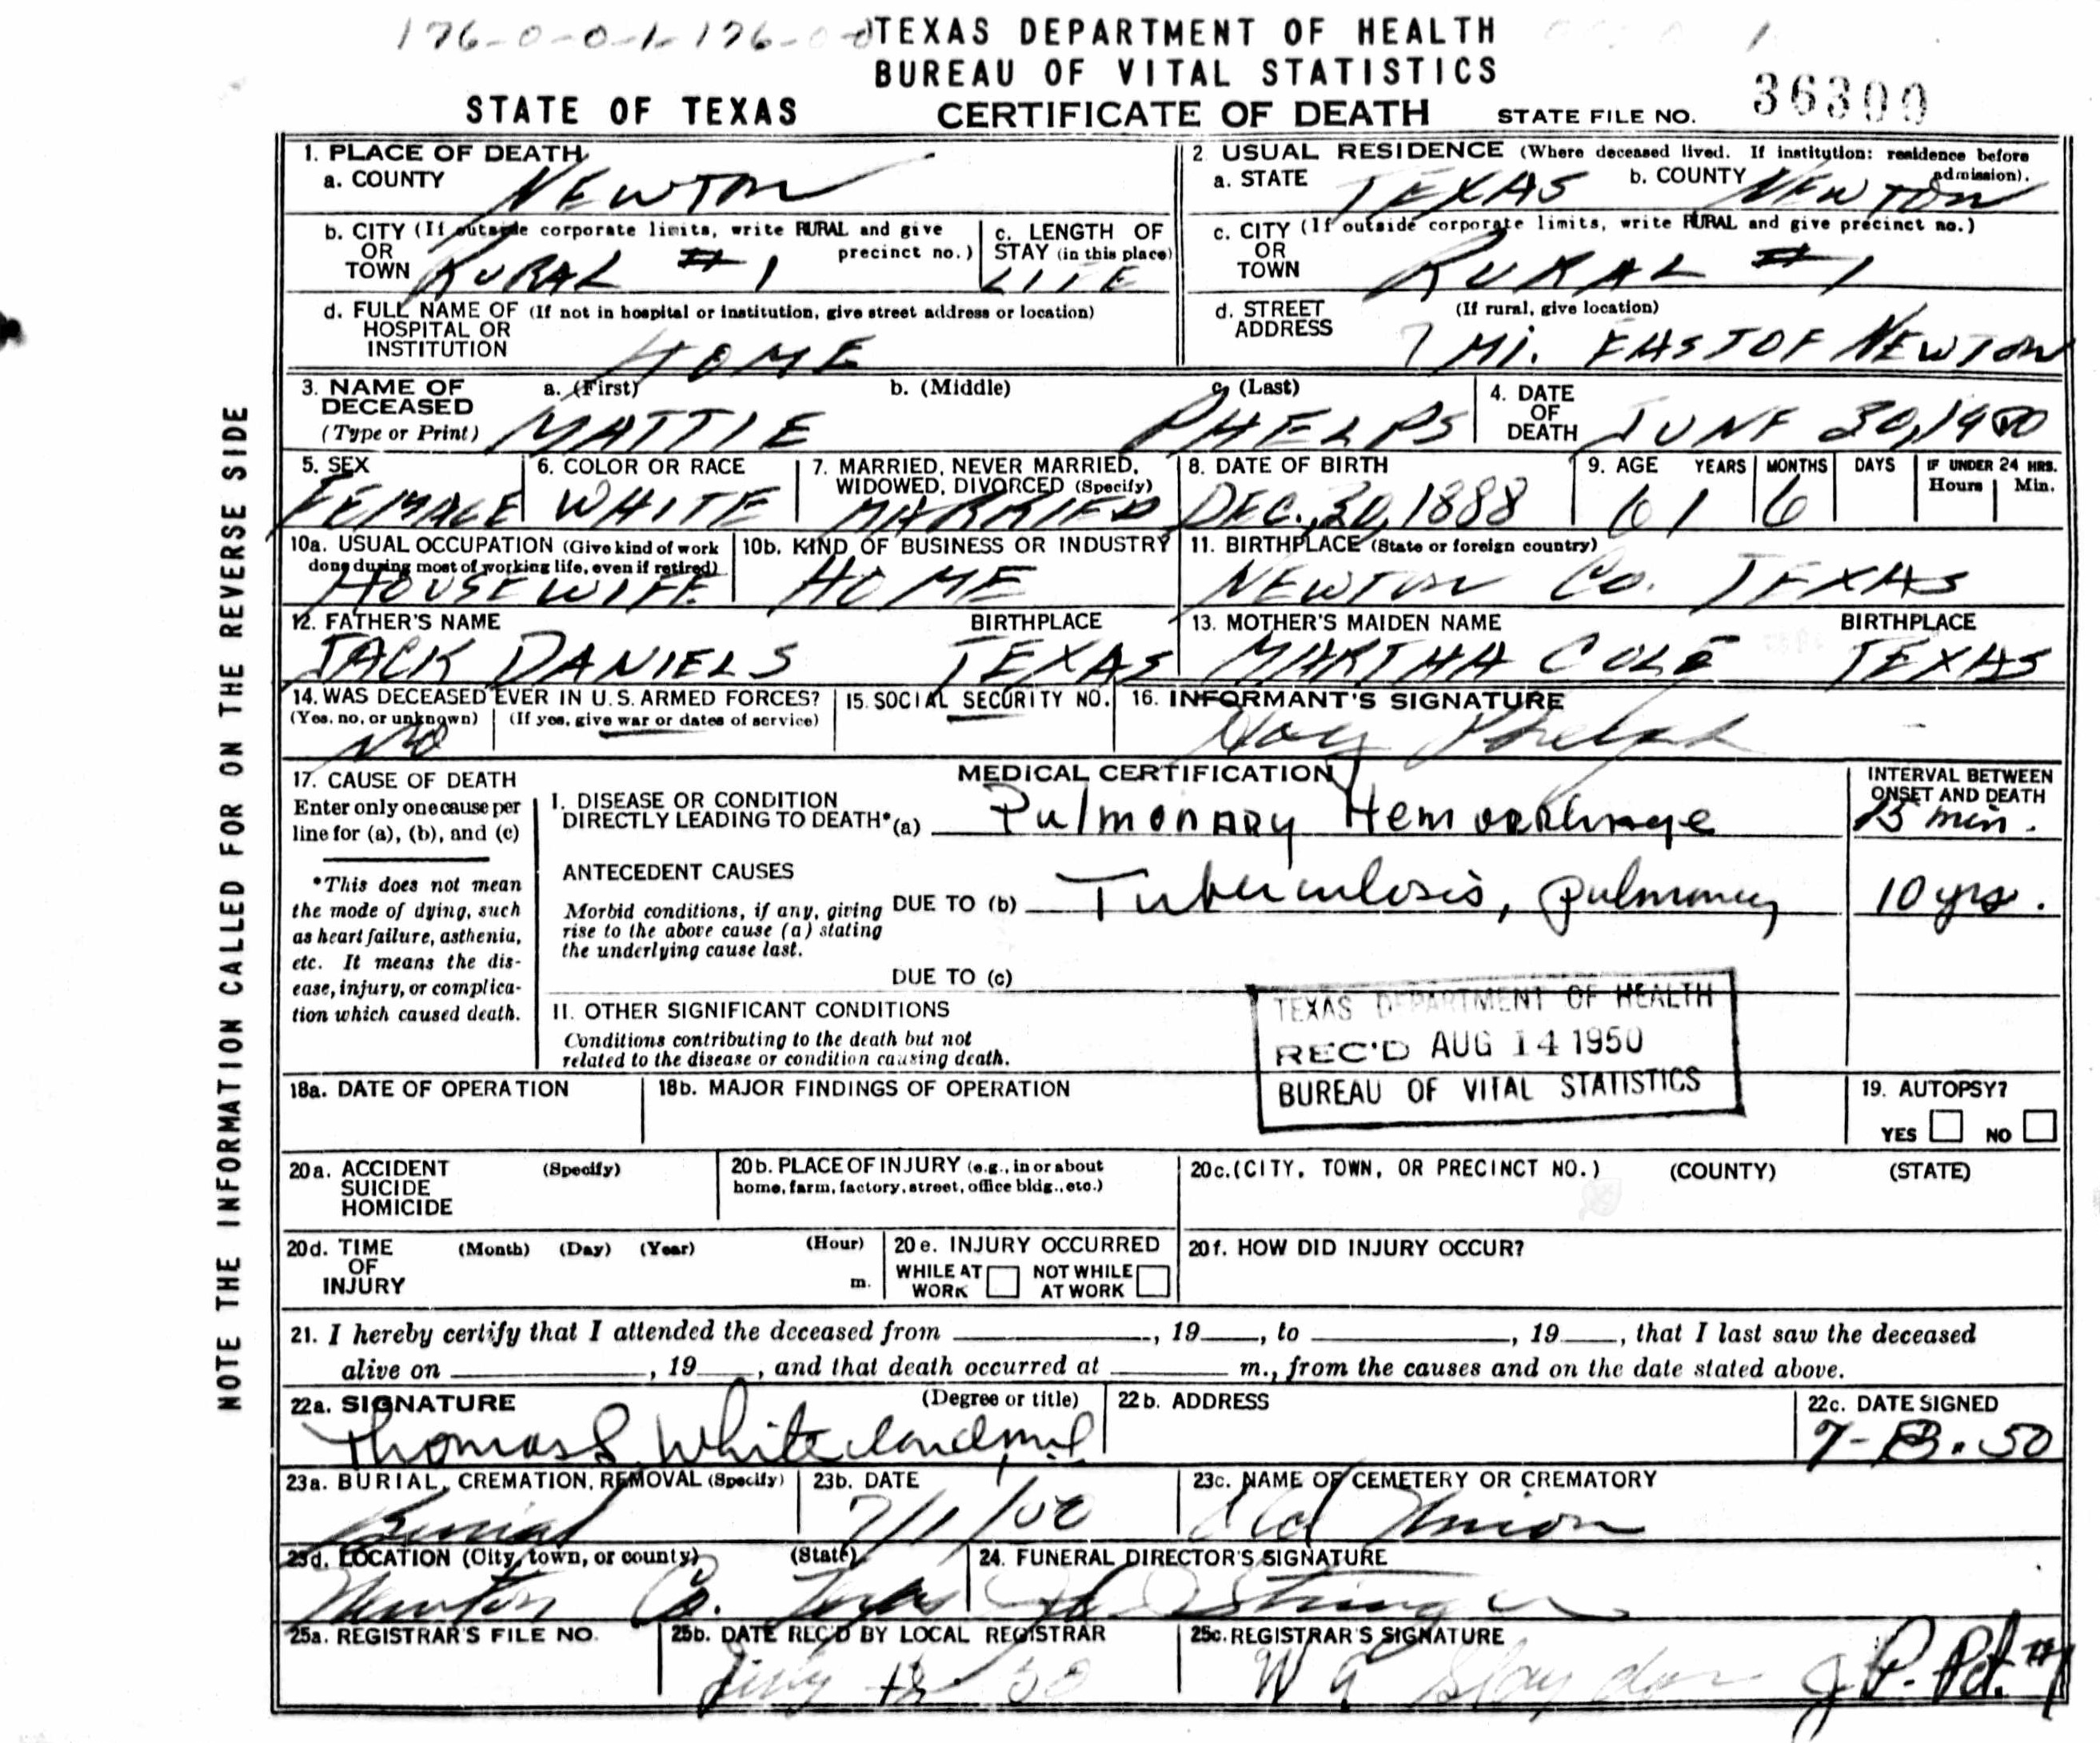 176-0-0-1-176-0-0 TEXAS DEPARTMENT OF HEALTH 1
BUREAU OF VITAL STATISTICS
STATE OF TEXAS CERTIFICATE OF DEATH STATE FILE NO. 36399
1. PLACE OF DEATH
a. COUNTY NEWTON
2 USUAL RESIDENCE (Where deceased lived. If institution: residence before admission).
a. STATE TEXAS b. COUNTY NEWTON
b. CITY (If outside corporate limits, write RURAL and give precinct no.)
OR
TOWN RURAL #1
c. LENGTH OF
STAY (in this place)
LIFE
c. CITY (If outside corporate limits, write RURAL and give precinct no.)
OR
TOWN RURAL #1
d. FULL NAME OF (If not in hospital or institution, give street address or location)
HOSPITAL OR
INSTITUTION HOME
d. STREET (If rural, give location)
ADDRESS 7 MI. EAST OF NEWTON
3. NAME OF a. (First) b. (Middle) c. (Last)
DECEASED
(Type or Print) MATTIE PHELPS
4. DATE
OF
DEATH JUNE 30, 1950
5. SEX
FEMALE
6. COLOR OR RACE
WHITE
7. MARRIED, NEVER MARRIED,
WIDOWED, DIVORCED (Specify)
MARRIED
8. DATE OF BIRTH
DEC. 30, 1888
9. AGE YEARS MONTHS DAYS IF UNDER 24 HRS.
Hours Min.
61 6
10a. USUAL OCCUPATION (Give kind of work
done during most of working life, even if retired)
HOUSEWIFE
10b. KIND OF BUSINESS OR INDUSTRY
HOME
11. BIRTHPLACE (State or foreign country)
NEWTON CO. TEXAS
12. FATHER'S NAME BIRTHPLACE
JACK DANIELS TEXAS
13. MOTHER'S MAIDEN NAME BIRTHPLACE
MARTHA COLE TEXAS
14. WAS DECEASED EVER IN U.S. ARMED FORCES?
(Yes, no, or unknown) (If yes, give war or dates of service)
NO
15. SOCIAL SECURITY NO.
16. INFORMANT'S SIGNATURE
Phelps
MEDICAL CERTIFICATION
17. CAUSE OF DEATH
Enter only one cause per
line for (a), (b), and (c)
*This does not mean
the mode of dying, such
as heart failure, asthenia,
etc. It means the dis-
ease, injury, or complica-
tion which caused death.
I. DISEASE OR CONDITION
DIRECTLY LEADING TO DEATH* (a) Pulmonary Hemorrhage
INTERVAL BETWEEN
ONSET AND DEATH
15 min.
ANTECEDENT CAUSES
Morbid conditions, if any, giving
rise to the above cause (a) stating
the underlying cause last.
DUE TO (b) Tuberculosis, pulmonary 10 yrs.
DUE TO (c)
II. OTHER SIGNIFICANT CONDITIONS
Conditions contributing to the death but not
related to the disease or condition causing death.
TEXAS DEPARTMENT OF HEALTH
REC'D AUG 14 1950
BUREAU OF VITAL STATISTICS
18a. DATE OF OPERATION
18b. MAJOR FINDINGS OF OPERATION
19. AUTOPSY?
YES NO
20a. ACCIDENT (Specify)
SUICIDE
HOMICIDE
20b. PLACE OF INJURY (e.g., in or about
home, farm, factory, street, office bldg., etc.)
20c. (CITY, TOWN, OR PRECINCT NO.) (COUNTY) (STATE)
20d. TIME (Month) (Day) (Year) (Hour)
OF
INJURY m.
20e. INJURY OCCURRED
WHILE AT WORK NOT WHILE AT WORK
20f. HOW DID INJURY OCCUR?
21. I hereby certify that I attended the deceased from , 19 , to , 19 , that I last saw the deceased
alive on , 19 , and that death occurred at m., from the causes and on the date stated above.
22a. SIGNATURE (Degree or title)
Thomas S Whiteland md
22b. ADDRESS
22c. DATE SIGNED
7-13-50
23a. BURIAL, CREMATION, REMOVAL (Specify)
Burial
23b. DATE
7/1/50
23c. NAME OF CEMETERY OR CREMATORY
Old Union
23d. LOCATION (City, town, or county) (State)
Newton Co. Texas
24. FUNERAL DIRECTOR'S SIGNATURE
Stringer
25a. REGISTRAR'S FILE NO.
25b. DATE REC'D BY LOCAL REGISTRAR
July 18 50
25c. REGISTRAR'S SIGNATURE
W G Slaydon J.P. Pct. #1
NOTE THE INFORMATION CALLED FOR ON THE REVERSE SIDE